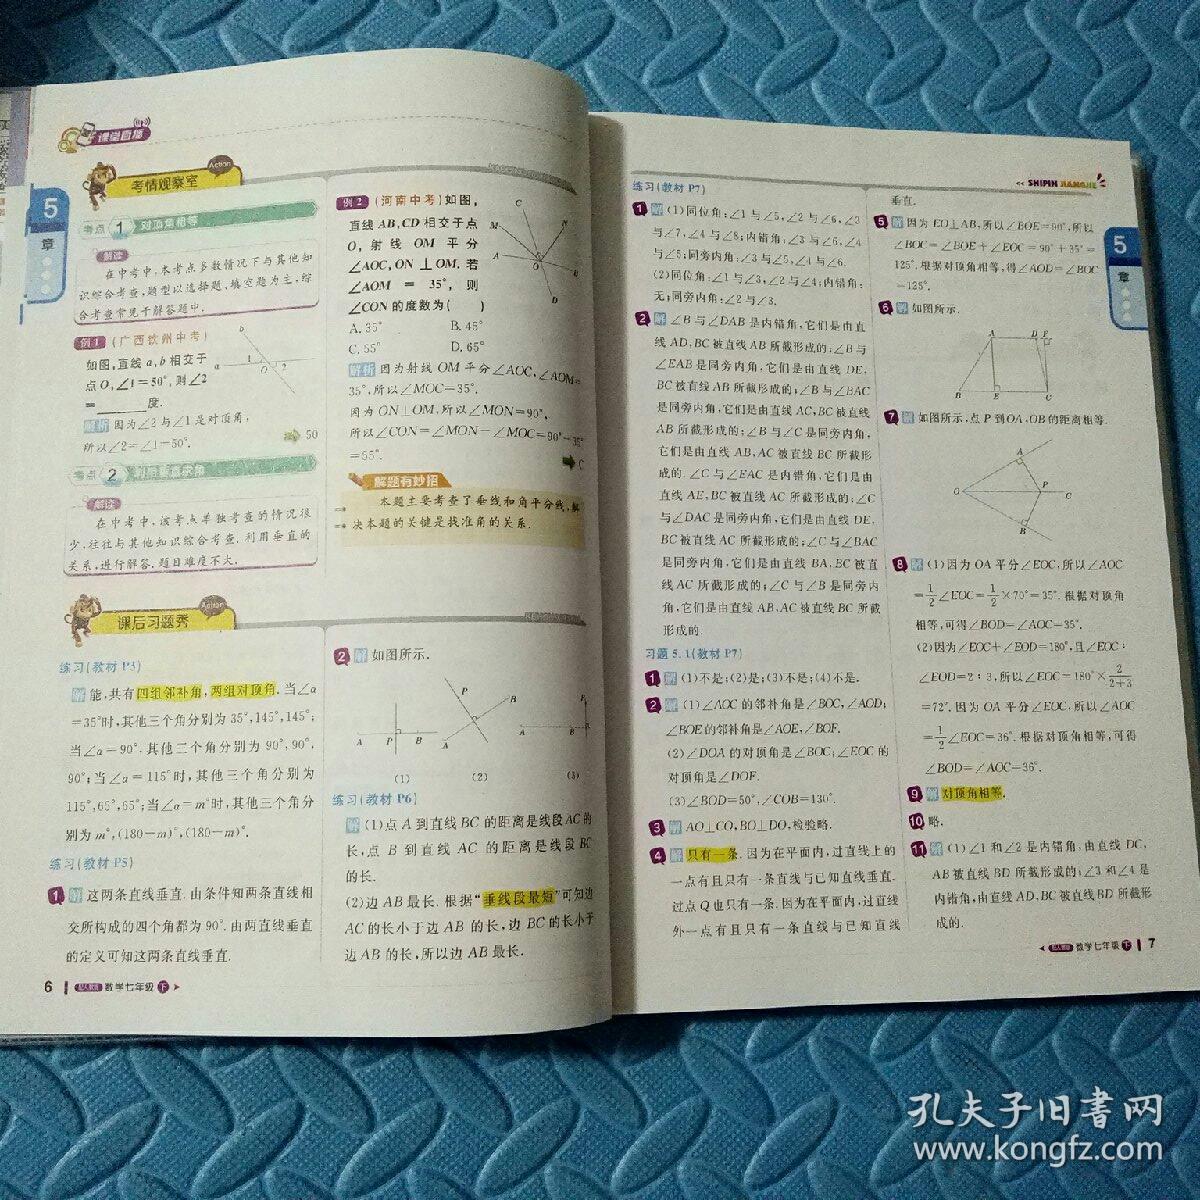 课堂直播
考情观察室
Action
5
章
考点 1 对顶角相等
解读
在中考中,本考点多数情况下与其他知
识综合考查,题型以选择题、填空题为主,综
合考查常见于解答题中.
例1 (广西钦州中考)
如图,直线 a,b 相交于
点 O,∠1=50°,则∠2
=______度.
b
a
1
O
2
解析 因为∠2与∠1是对顶角,
所以∠2=∠1=50°.
50
考点 2
解读
在中考中,该考点单独考查的情况很
少,往往与其他知识综合考查.利用垂直的
关系,进行解答.题目难度不大.
例2 (河南中考)如图,
直线 AB,CD 相交于点
O,射线 OM 平分
∠AOC,ON⊥OM.若
∠AOM = 35°,则
∠CON 的度数为( )
A.35° B.45°
C.55° D.65°
C
M
N
A
O
B
D
解析 因为射线 OM 平分∠AOC,∠AOM=
35°,所以∠MOC=35°.
因为 ON⊥OM,所以∠MON=90°,
所以∠CON=∠MON-∠MOC=90°-35°
=55°.
C
解题有妙招
本题主要考查了垂线和角平分线,解
决本题的关键是找准角的关系.
课后习题秀
Action
练习(教材 P3)
解 能,共有四组邻补角,两组对顶角.当∠α
=35°时,其他三个角分别为 35°,145°,145°;
当∠α=90°,其他三个角分别为 90°,90°,
90°;当∠α=115°时,其他三个角分别为
115°,65°,65°;当∠α=m°时,其他三个角分
别为 m°,(180-m)°,(180-m)°.
练习(教材 P5)
1 解 这两条直线垂直.由条件知两条直线相
交所构成的四个角都为 90°.由两直线垂直
的定义可知这两条直线垂直.
2 解 如图所示.
A P B
P
A
B
A
B
(1) (2) (3)
练习(教材 P6)
解 (1)点 A 到直线 BC 的距离是线段 AC 的
长,点 B 到直线 AC 的距离是线段 BC
的长.
(2)边 AB 最长.根据“垂线段最短”可知边
AC 的长小于边 AB 的长,边 BC 的长小于
边 AB 的长,所以边 AB 最长.
6 数学七年级 下
SHIPIN JIANGJIE
练习(教材 P7)
1 解 (1)同位角:∠1与∠5,∠2与∠6,∠3
与∠7,∠4与∠8;内错角:∠3与∠6,∠4
与∠5;同旁内角:∠3与∠5,∠4与∠6.
(2)同位角:∠1与∠3,∠2与∠4;内错角:
无;同旁内角:∠2与∠3.
2 解 ∠B与∠DAB是内错角,它们是由直
线 AD,BC被直线 AB 所截形成的;∠B与
∠EAB是同旁内角,它们是由直线 DE,
BC被直线 AB 所截形成的;∠B与∠BAC
是同旁内角,它们是由直线 AC,BC被直线
AB 所截形成的;∠B与∠C是同旁内角,
它们是由直线 AB,AC 被直线 BC 所截形
成的.∠C与∠EAC是内错角,它们是由
直线 AE,BC被直线 AC 所截形成的;∠C
与∠DAC是同旁内角,它们是由直线 DE,
BC被直线 AC 所截形成的;∠C与∠BAC
是同旁内角,它们是由直线 BA,BC被直
线 AC 所截形成的;∠C与∠B是同旁内
角,它们是由直线 AB,AC被直线 BC 所截
形成的.
习题 5.1(教材 P7)
1 解 (1)不是;(2)是;(3)不是;(4)不是.
2 解 (1)∠AOC 的邻补角是∠BOC,∠AOD;
∠BOE的邻补角是∠AOE,∠BOF.
(2)∠DOA 的对顶角是∠BOC;∠EOC 的
对顶角是∠DOF.
(3)∠BOD=50°,∠COB=130°.
3 解 AO⊥CO,BO⊥DO,检验略.
4 解 只有一条.因为在平面内,过直线上的
一点有且只有一条直线与已知直线垂直.
过点 Q 也只有一条.因为在平面内,过直线
外一点有且只有一条直线与已知直线
垂直.
5 解 因为 EO⊥AB,所以∠BOE=90°,所以
∠BOC=∠BOE+∠EOC=90°+35°=
125°.根据对顶角相等,得∠AOD=∠BOC
=125°.
6 解 如图所示.
A D F
B E C
7 解 如图所示,点 P 到 OA,OB 的距离相等.
A
O
P C
B
8 解 (1)因为 OA 平分∠EOC,所以∠AOC
=1/2∠EOC=1/2×70°=35°.根据对顶角
相等,可得∠BOD=∠AOC=35°.
(2)因为∠EOC+∠EOD=180°,且∠EOC:
∠EOD=2:3,所以∠EOC=180°×2/(2+3)
=72°.因为 OA 平分∠EOC,所以∠AOC
=1/2∠EOC=36°.根据对顶角相等,可得
∠BOD=∠AOC=36°.
9 解 对顶角相等.
10 略.
11 解 (1)∠1和∠2是内错角,由直线 DC,
AB 被直线 BD 所截形成的;∠3和∠4是
内错角,由直线 AD,BC被直线 BD 所截形
成的.
5
章
数学七年级 下 7
孔夫子旧书网
www.kongfz.com